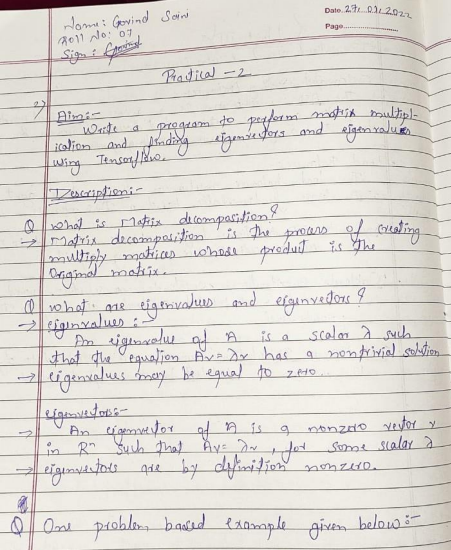 Date 27/01/2022
Page
Name: Govind Saini
Roll No: 07
Sign: Govind
Practical - 2
2) Aim:-
Write a program to perform matrix multipl-
ication and finding eigenvectors and eigenvalues
using Tensorflow.
Description:-
Q What is Matrix decomposition?
→ Matrix decomposition is the process of creating
multiply matrices whose product is the
Original matrix.
Q what are eigenvalues and eigenvectors?
→ eigenvalues :-
An eigenvalue of A is a scalar λ such
that the equation Av=λv has a nontrivial solution
→ eigenvalues may be equal to zero.
eigenvectors:-
→ An eigenvector of A is a nonzero vector v
in Rⁿ such that Av=λv, for some scalar λ
→ eigenvectors are by definition nonzero.
Q One problem based example given below:-